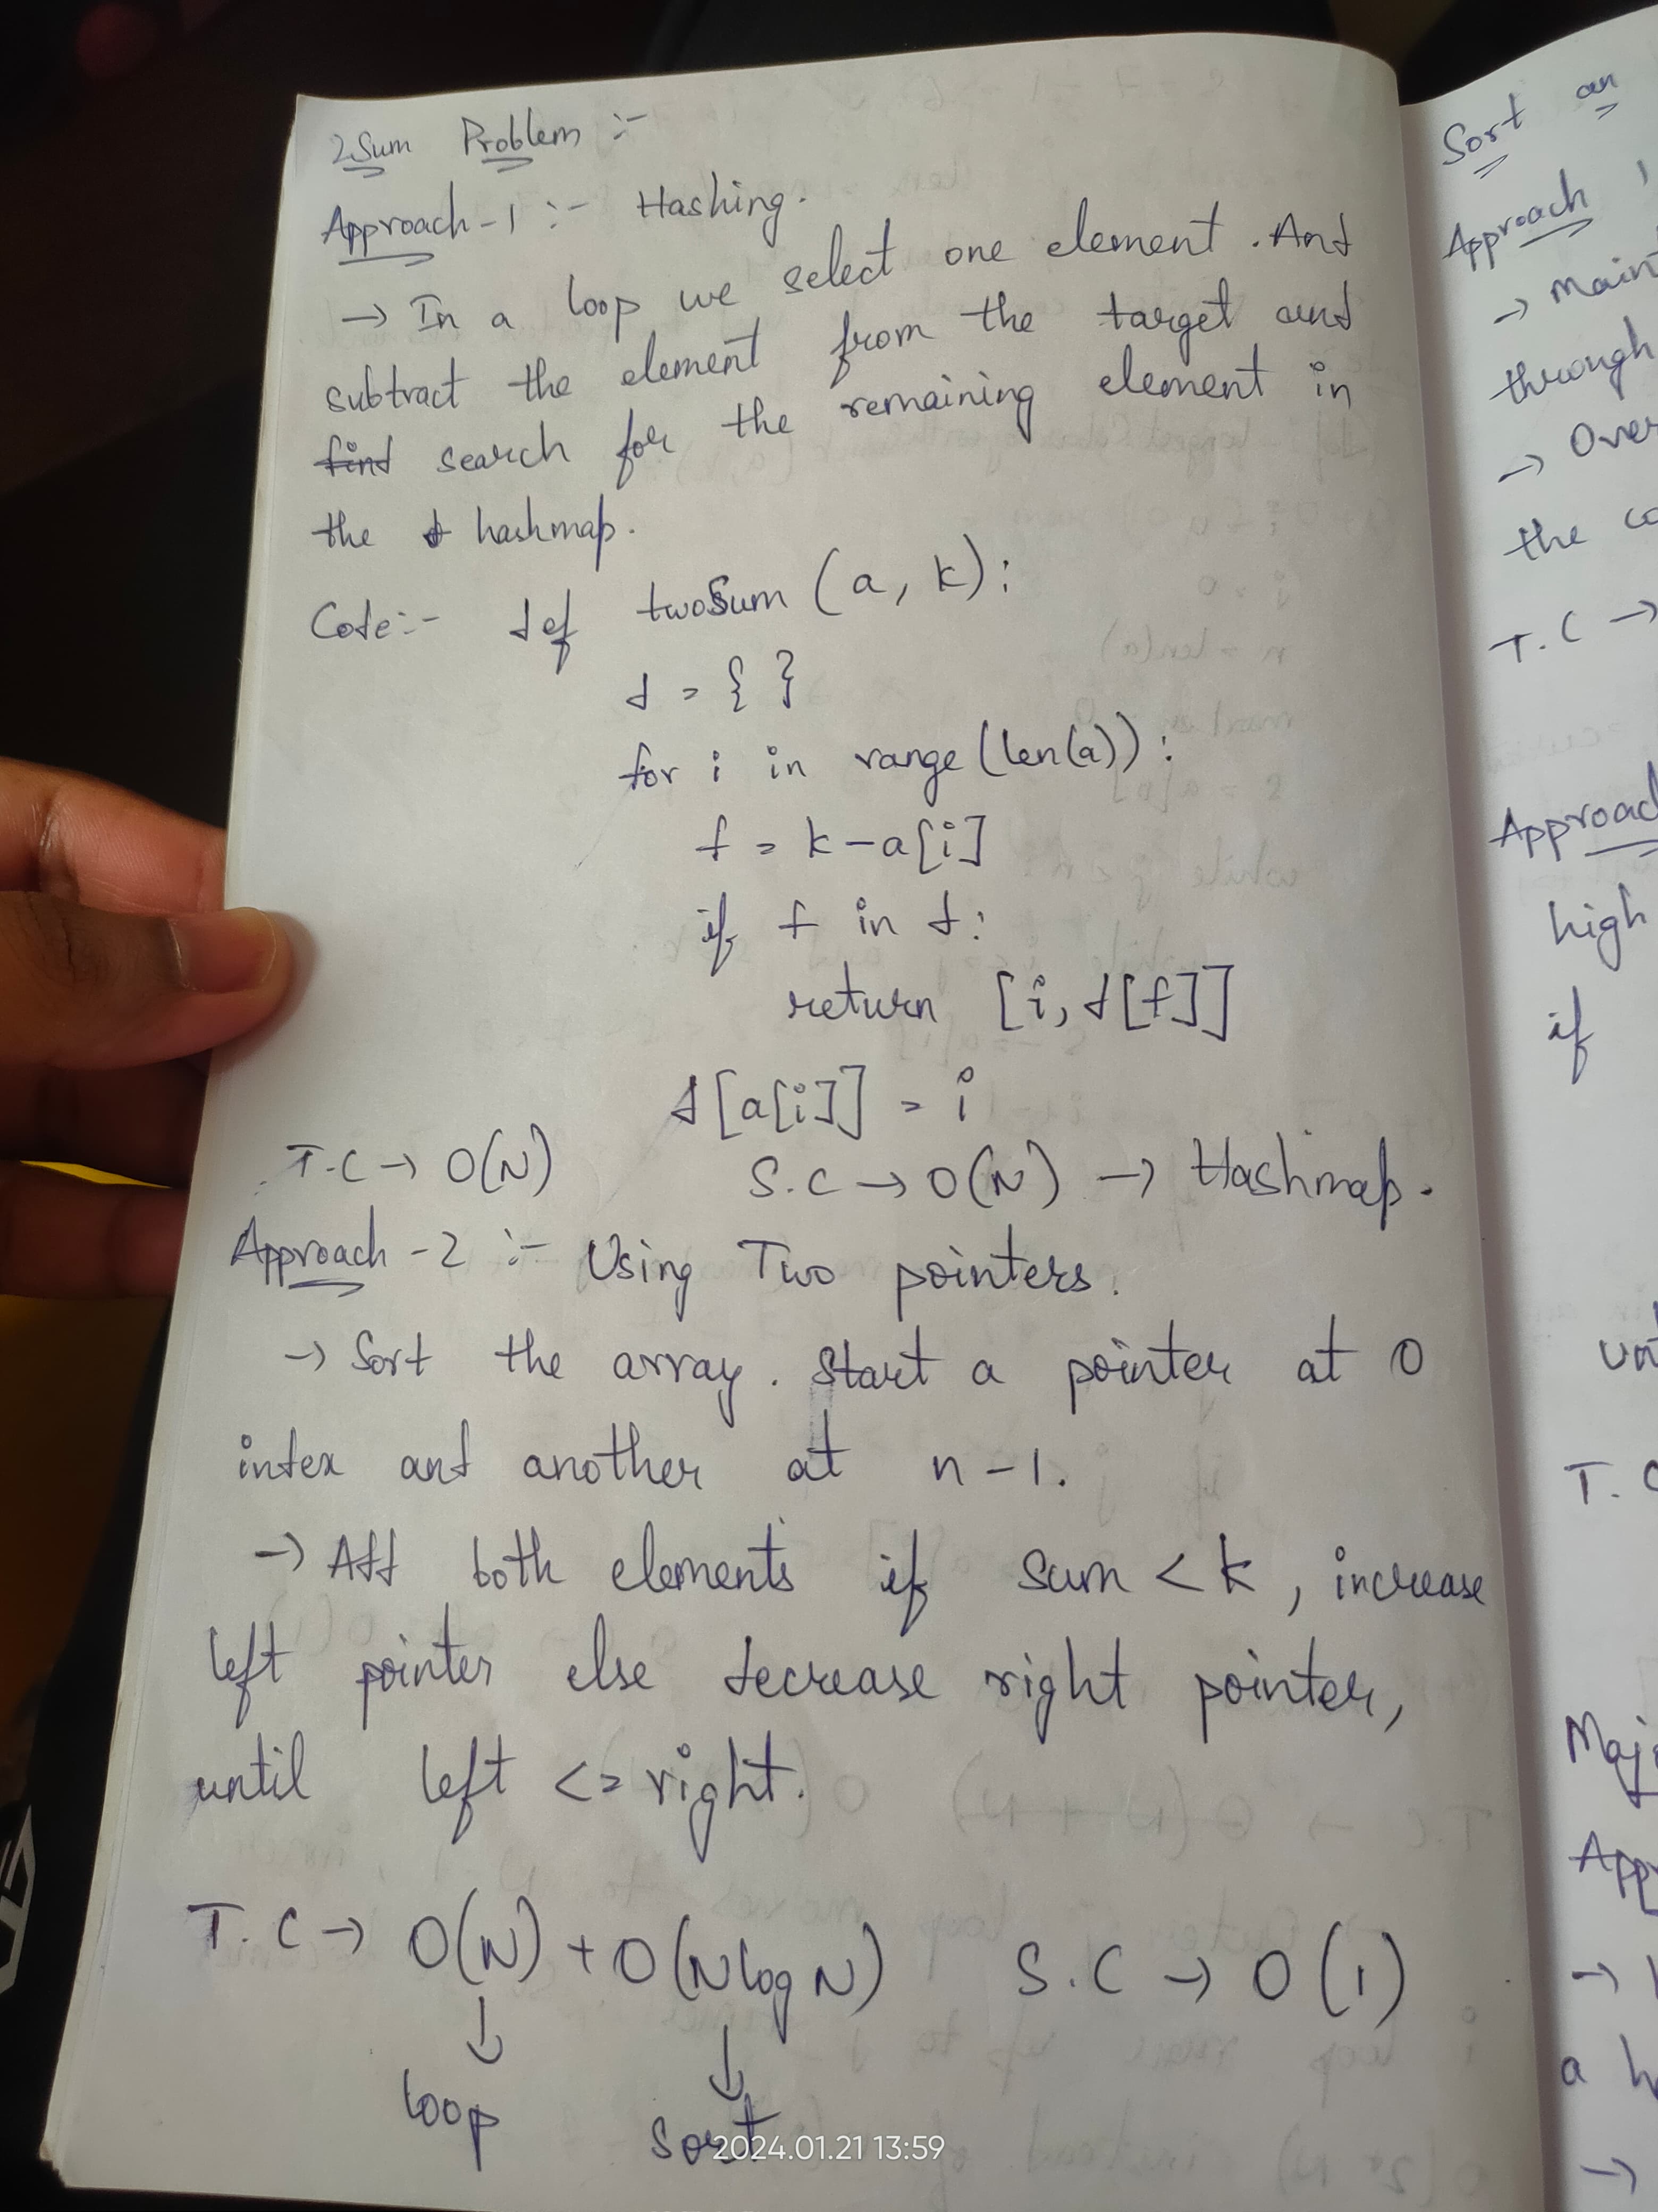 2Sum Problem :-
Approach-1 :- Hashing.
→ In a loop we select one element. And
subtract the element from the target and
find search for the remaining element in
the hashmap.
Code:- def twoSum (a, k):
d = { }
for i in range(len(a)):
f = k-a[i]
if f in d:
return [i, d[f]]
d[a[i]] = i
T.C → O(N) S.C → O(N) → Hashmap.
Approach-2 :- Using Two pointers.
→ Sort the array. Start a pointer at 0
index and another at n-1.
→ Add both elements if sum < k, increase
left pointer else decrease right pointer,
until left <= right.
T.C → O(N) + O(N log N) S.C → O(1)
↓ ↓
loop sort
2024.01.21 13:59
Sort an
Approach
→
through
→ Over
the
T.C →
Approac
high
if
T.
→
a
→